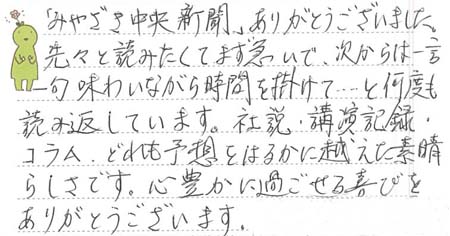 「みやざき中央新聞」、ありがとうございました。
先々と読みたくてまず急いで、次からは一言
一句味わいながら時間を掛けて…と何度も
読み返しています。社説・講演記録・
コラム、どれも予想をはるかに越えた素晴
らしさです。心豊かに過ごせる喜びを
ありがとうございます。